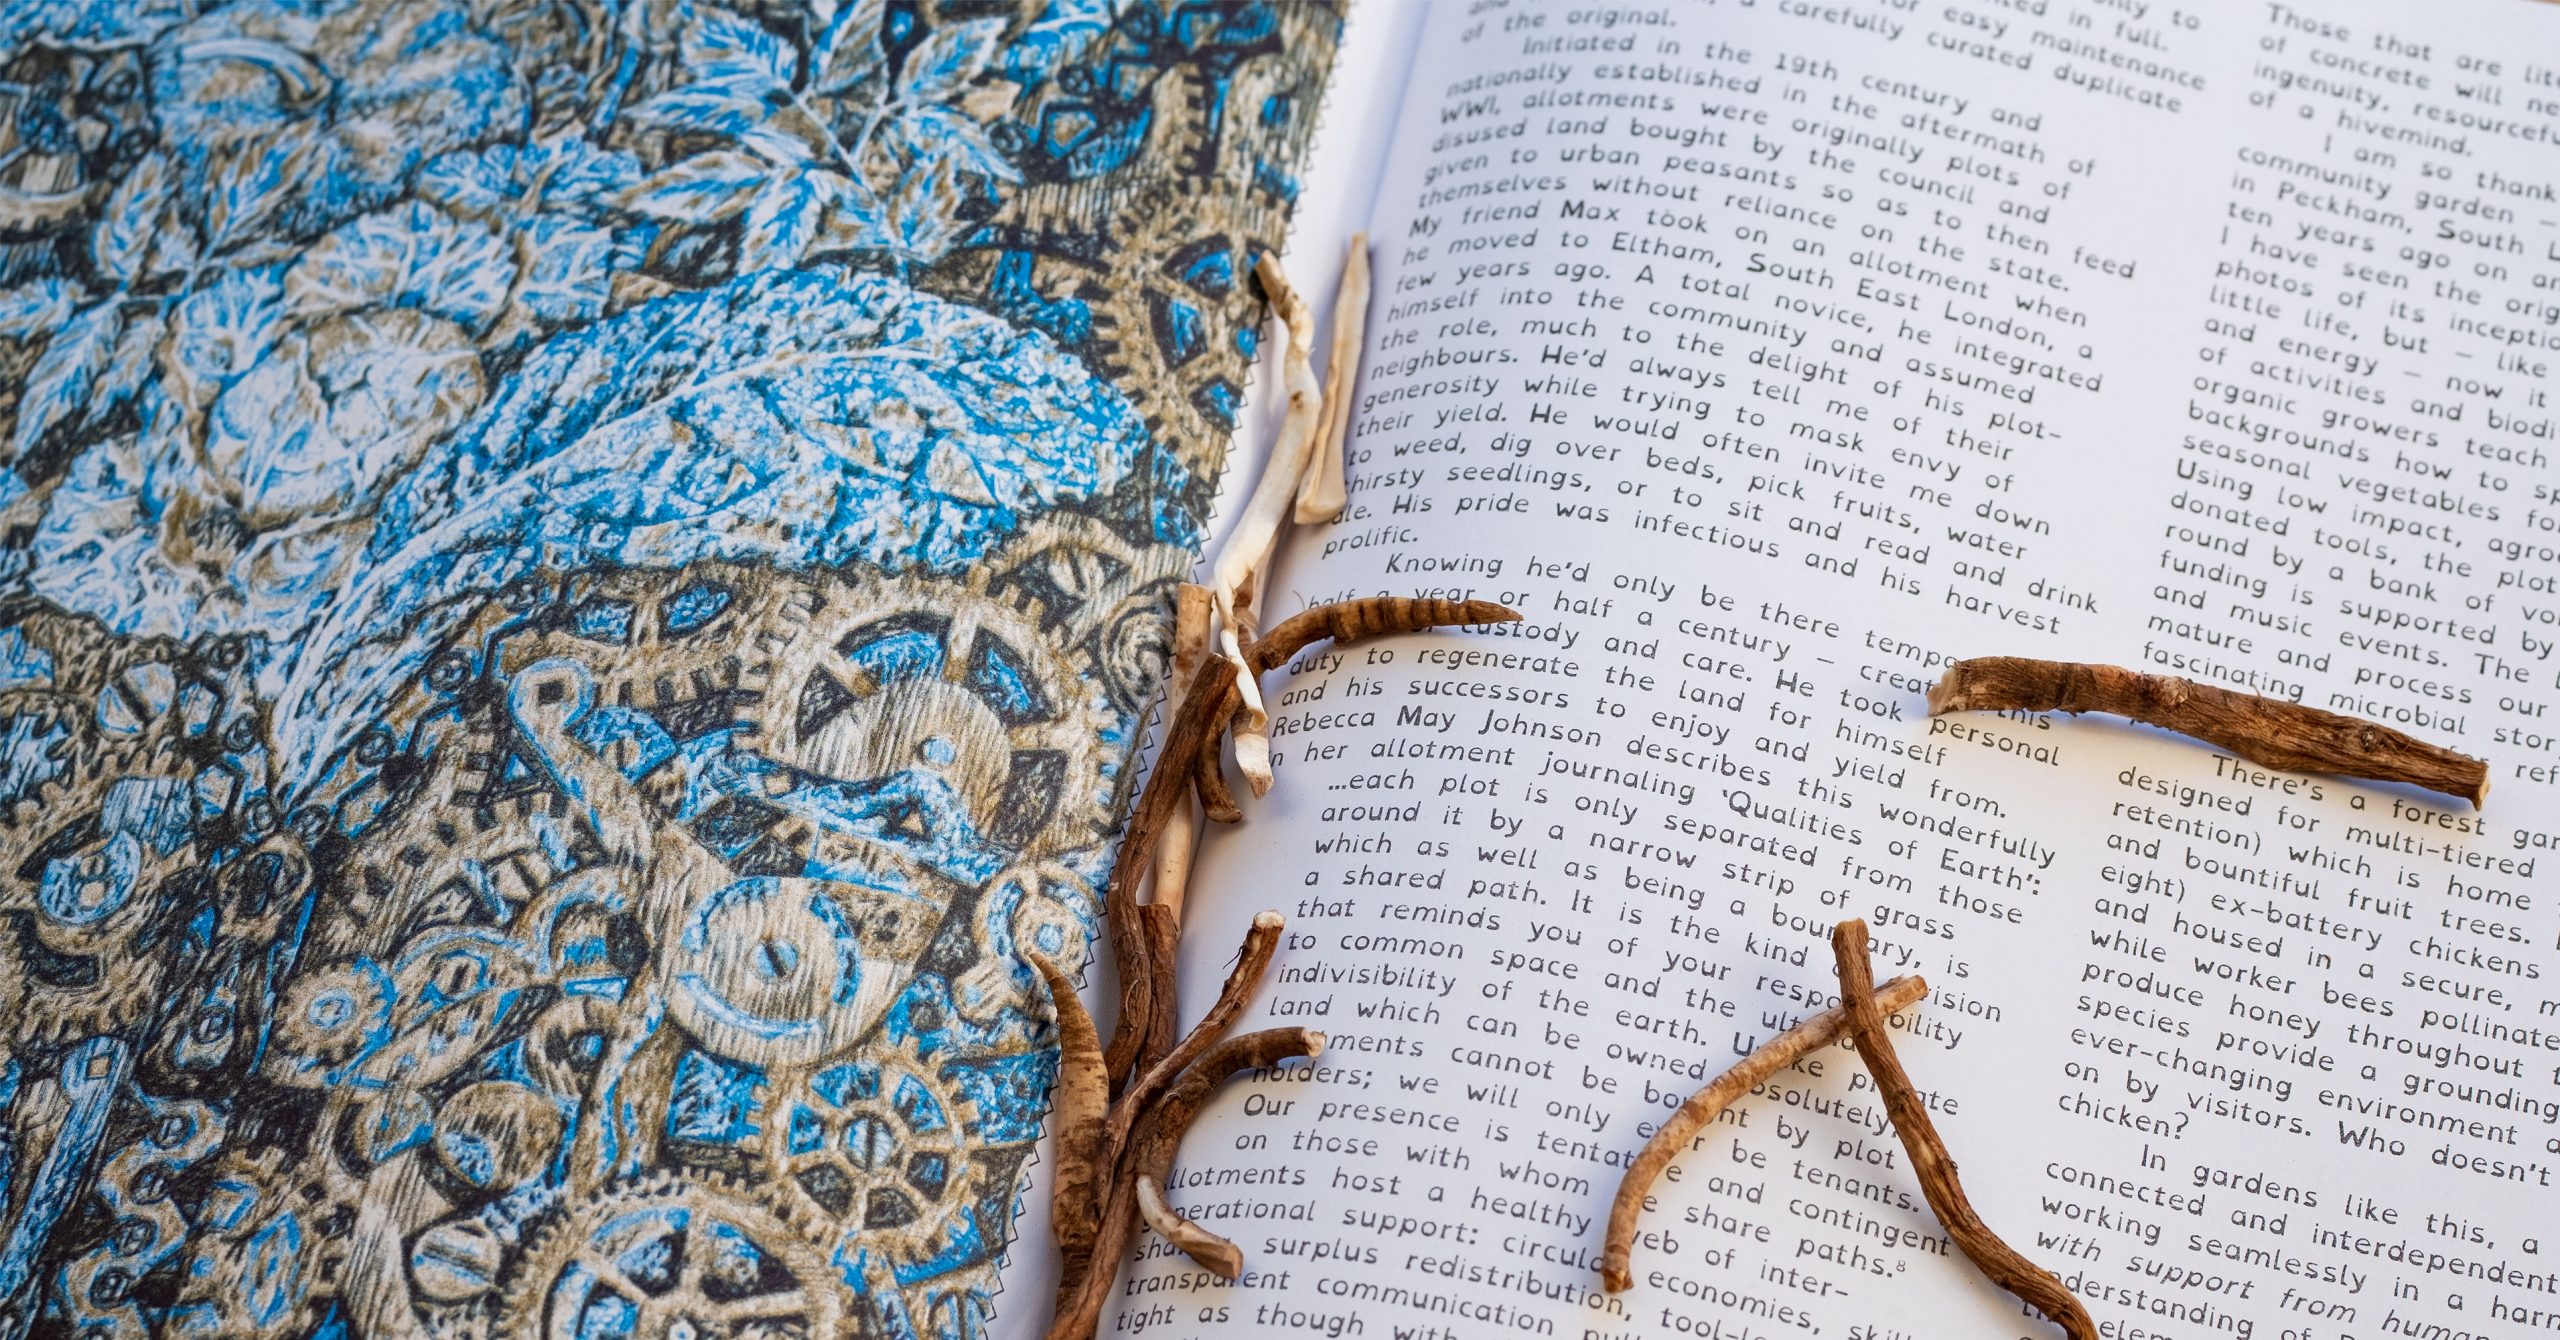 only to
ted in full.
for easy maintenance
a carefully curated duplicate
of the original.
Initiated in the 19th century and
nationally established in the aftermath of
WWI, allotments were originally plots of
disused land bought by the council and
given to urban peasants so as to then feed
themselves without reliance on the state.
My friend Max took on an allotment when
he moved to Eltham, South East London, a
few years ago. A total novice, he integrated
himself into the community and assumed
the role, much to the delight of his plot-
neighbours. He'd always tell me of their
generosity while trying to mask envy of
their yield. He would often invite me down
to weed, dig over beds, pick fruits, water
thirsty seedlings, or to sit and read and drink
ale. His pride was infectious and his harvest
prolific.
Knowing he'd only be there tempo
half a year or half a century – creat this
custody and care. He took personal
duty to regenerate the land for himself
and his successors to enjoy and yield from.
Rebecca May Johnson describes this wonderfully
n her allotment journaling ‘Qualities of Earth’:
...each plot is only separated from those
around it by a narrow strip of grass
which as well as being a boundary, is
a shared path. It is the kind vision
that reminds you of your responsibility
to common space and the ult
indivisibility of the earth. Unlike private
land which can be owned absolutely,
ments cannot be bought by plot
holders; we will only ever be tenants.
Our presence is tentative and contingent
on those with whom we share paths.⁸
llotments host a healthy web of inter-
generational support: circula economies, skil
sha surplus redistribution, tool-l
transparent communication
tight as though with
Those that are lit
of concrete will ne
ingenuity, resourcefu
of a hivemind.
I am so thank
community garden –
in Peckham, South L
ten years ago on an
I have seen the orig
photos of its incepti
little life, but – like
and energy – now it
of activities and biodi
organic growers teach
backgrounds how to sp
seasonal vegetables fo
Using low impact, agro
donated tools, the plot
round by a bank of vo
funding is supported by
and music events. The
mature and process our
fascinating microbial stor
ref
There's a forest gar
designed for multi-tiered
retention) which is home
and bountiful fruit trees.
eight) ex-battery chickens
and housed in a secure, m
while worker bees pollinate
produce honey throughout t
species provide a grounding
ever-changing environment a
on by visitors. Who doesn't
chicken?
In gardens like this, a
connected and interdependent
working seamlessly in a harm
with support from human
nderstanding of
elem